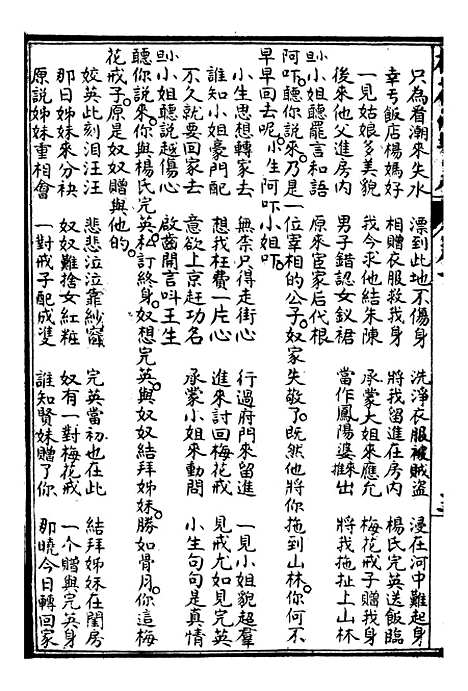 只為看潮來失水 漂到此地不傷身 洗淨衣服被賊盜 浸在河中難起身
幸亏飯店楊媽好 相贈衣服救我身 將我留進在房内 楊氏完英送飯臨
一見姑娘多美貌 我今求他結朱陳 承蒙大姐來應允 梅花戒子贈我身
後來他父進房内 男子錯認女釵裙 當作鳳陽婆推出 將我拖扯上山林
旦小姐聽罷言和語 原來宦家后代根
阿吓。聽你說來。乃是一位宰相的公子。奴家失敬了。既然他將你拖到山林。你何不
早早回去呢。小生阿吓小姐吓。
小生思想轉家去 無柰只得走街心 行過府門來留進 一見小姐貌超羣
誰知小姐豪門配 想我枉費一片心 進來討回梅花戒 見戒尤如見完英
不久就要回家去 意欲上京赶功名 承蒙小姐來動問 小生句句是真情
旦小姐聽說越傷心 啟齒開言呌王生
聽你說來。你與楊氏完英私訂終身。奴想完英。與奴奴結拜姊妹。勝如骨肉。你這梅
花戒子。原是奴奴贈與他的。
姣英此刻淚汪汪 悲悲泣泣靠紗窻 完英當初也在此 結拜姊妹在閨房
那日姊妹來分袂 奴奴難捨女紅粧 奴有一對梅花戒 一个贈與完英身
原說姊妹重相會 一對戒子配成雙 誰知賢妹贈了你 那曉今日轉回家